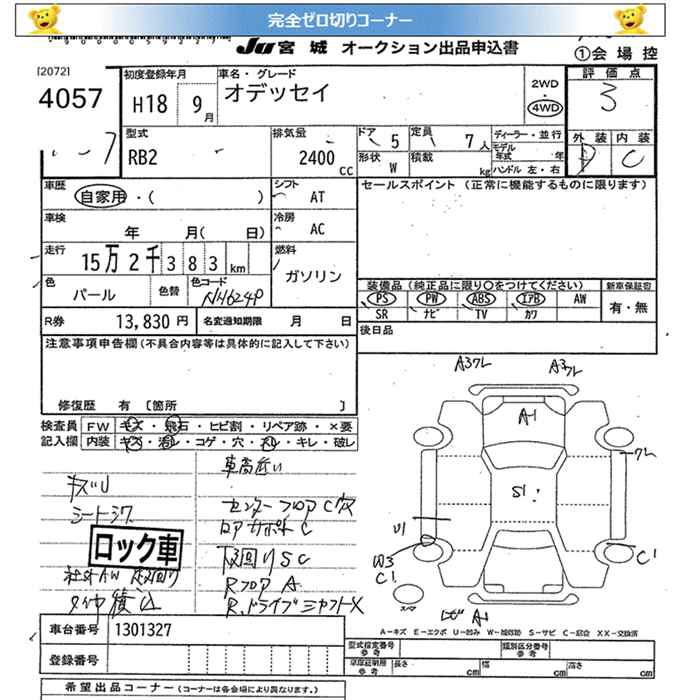 完全ゼロ切りコーナー
JU 宮城 オークション出品申込書
①会場控
[2072]
4057
初度登録年月
H18 9月
車名・グレード
オデッセイ
2WD
・
4WD
評価点
3
外装 内装
D C
型式
RB2
排気量
2400 CC
ドア 5
定員 7人
形状 W
積載 kg
ディーラー・並行
モデル
年式 年
ハンドル 左・右
車歴
自家用・( )
シフト
AT
セールスポイント (正常に機能するものに限ります)
車検
年 月( 日)
冷房
AC
走行
15万2千383km
燃料
ガソリン
色
パール
色替
色コード
NH624P
装備品 (純正品に限り〇をつけてください)
PS PW ABS エアB AW
SR ナビ TV カワ
新車保証書
有・無
R券 13,830円
名変通知期限 月 日
後日品
注意事項申告欄 (不具合内容等は具体的に記入して下さい)
修復歴 有 〔箇所 〕
検査員
記入欄
FW キズ・飛石・ヒビ割・リペア跡・×要
内装 キズ・汚れ・コゲ・穴・スレ・キレ・破レ
車高低い
キズU
シートシワ
センターフロアC穴
ロアサポートC
ロック車
下回りSC
社外AW
タイヤ積込
RフロアA
R.ドライブシャフトX
A3フレ A3フレ
A-1
S1
フレ
U1
W3
C1
C1
スペア
A-1
A-キズ E-エクボ U-凹み W-補修跡 S-サビ C-腐食 XX-交換済
車台番号 1301327
登録番号
型式指定番号
参考
類別区分番号
参考
車庫証明用
参考
長さ cm
幅 cm
高さ cm
希望出品コーナー (コーナーは各会場により異なります。)